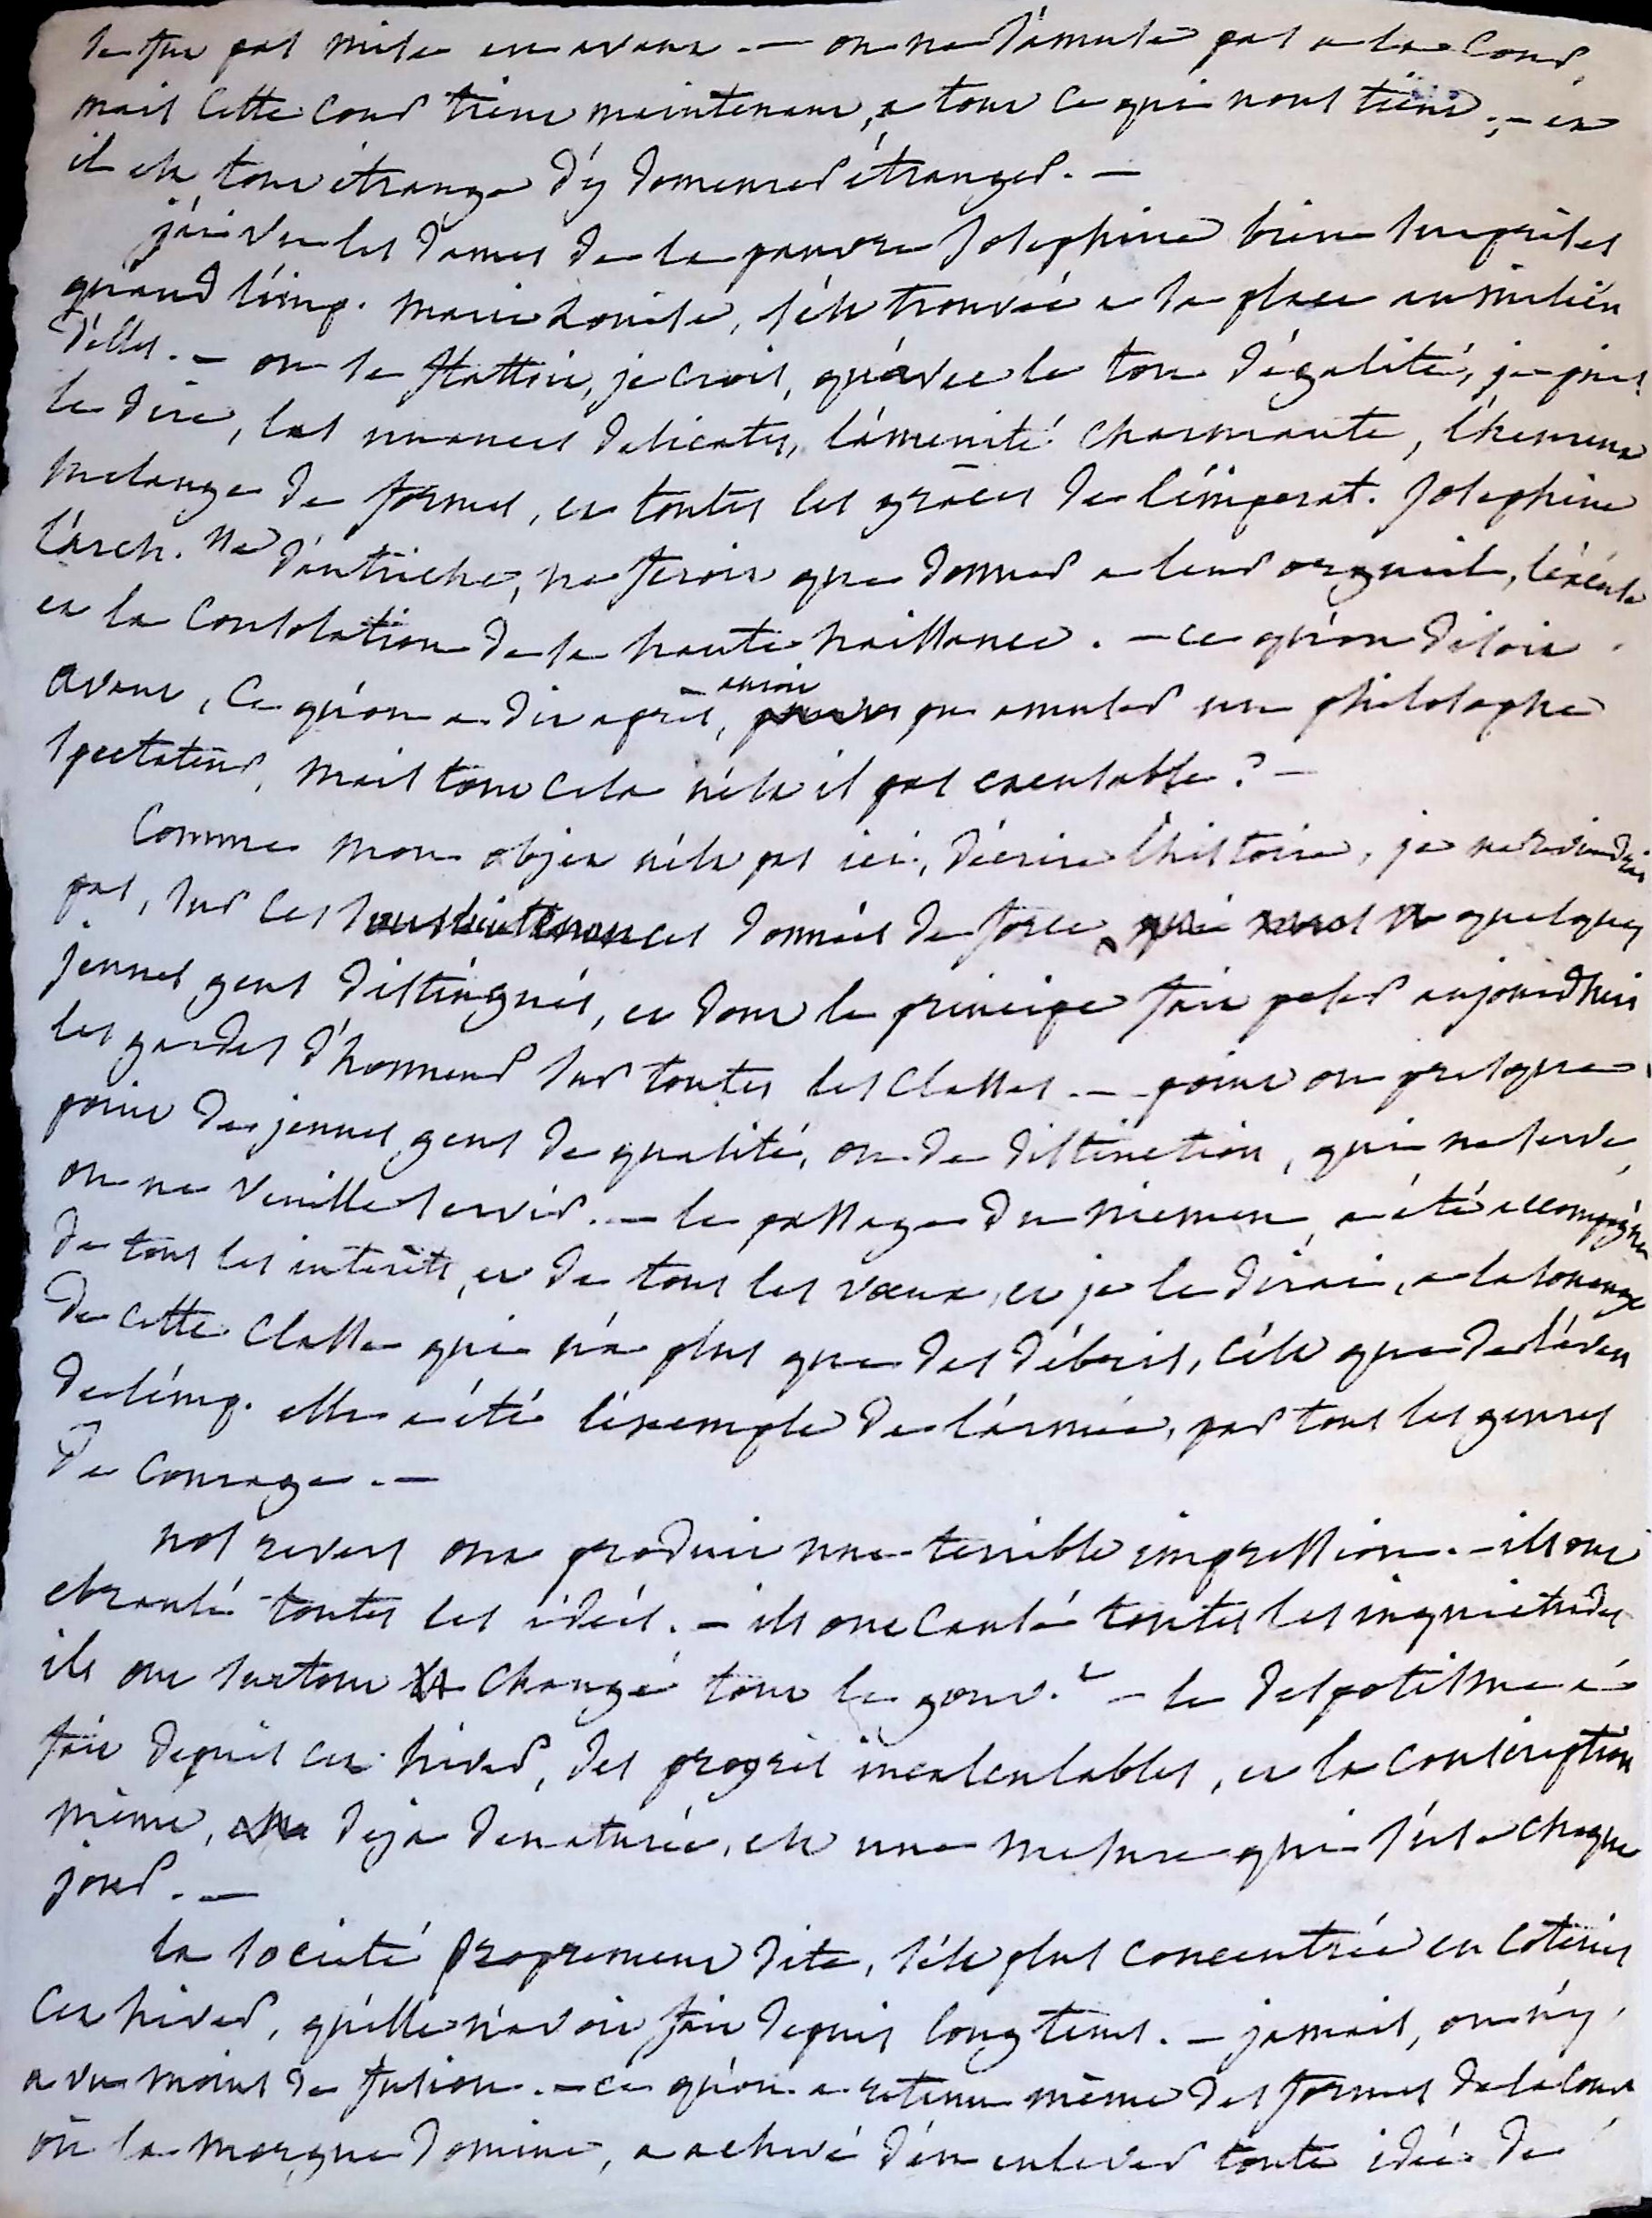 ne fut pas mise en avant. — on ne s'amuse pas a la Cour,
mais Cette Cour tient maintenant, a tout ce qui nous tient. — et
il est tout étrange d'y demeurer étranger. —
j'ai vu les dames de la pauvre Josephine bien surprises
quand l'imp. marie Louise, s'est trouvée a sa place au milieu
d'elles. — on se flattoit, je crois, qu'avec le ton d'égalité, je puis
le dire, les nuances delicates, l'aménité charmante, l'heureux
melange de formes, et toutes les grâces de l'impérat. Josephine
l'arch. sse d'autriche, ne feroit que donner a leur orgueil, l'excuse
et la Consolation de sa haute naissance. — ce qu'on disoit
avant, Ce qu'on a dit après, auroit pu amuser un philosophe
spectateur, mais tout cela n'est il pas excusable ? —
Comme mon objet n'est pas ici, d'écrire l'histoire, je ne reviendrai
pas, sur ces sous lieutenances données de force, a quelques
jeunes gens distingués, et dont le principe fait peser aujourdhui
les gardes d'honneur sur toutes les classes. — point ou presque
point de jeunes gens de qualité, ou de distinction, qui ne serve,
ou ne veuille servir. — le passage du niemen, a été accompagné
de tous les intérêts, et de tous les vœux, et je le dirai, a la louange
de cette classe qui n'a plus que des débris, c'est que de l'aveu
de l'imp. elle a été l'exemple de l'armée, par tous les genres
de Courage. —
nos revers ont produit une terrible impression. — ils ont
ebranlé toutes les idées. — ils ont causé toutes les inquietudes
ils ont surtout changé tout le gouv.t — le despotisme a
fait depuis cet hiver, des progrès incalculables, et la conscription
même, deja denaturée, est une mesure qui s'use chaque
jour. —
la société proprement dite, s'est plus concentrée en coteries
cet hiver, qu'elle n'avoit fait depuis longtems. — jamais, on n'y
a vu moins de fusion. — ce qu'on a retenu même des formes de la cour
où la morgue domine, a achevé d'en enlever toute idée de